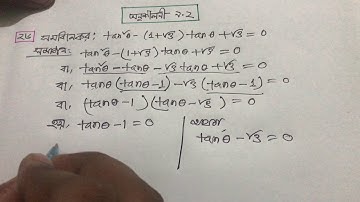 অনুশীলনী ৯.২
২৫ সমাধানকর: tan²θ - (1+√3) tanθ + √3 = 0
সমাধান: tan²θ - (1+√3) tanθ + √3 = 0
বা, tan²θ - tanθ - √3 tanθ + √3 = 0
বা, tanθ (tanθ - 1) - √3 (tanθ - 1) = 0
বা, (tanθ - 1) (tanθ - √3) = 0
হয়, tanθ - 1 = 0
অথবা
tanθ - √3 = 0